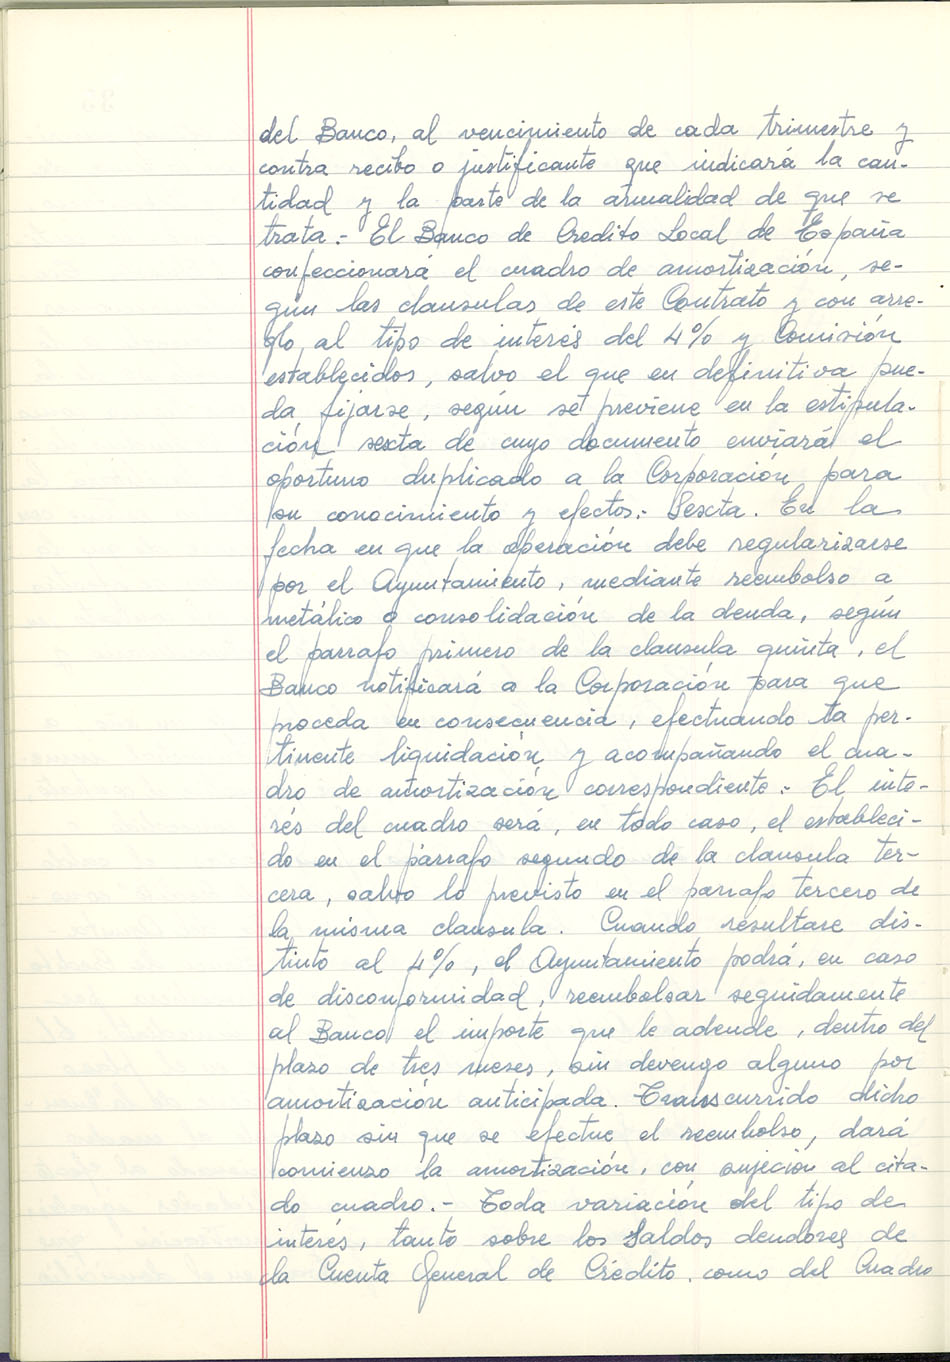 del Banco, al vencimiento de cada trimestre y
contra recibo o justificante que indicará la can-
tidad y la parte de la anualidad de que se
trata.- El Banco de Credito Local de España
confeccionará el cuadro de amortización, se-
gún las clausulas de este Contrato y con arre-
glo, al tipo de interés del 4% y Comisión
establecidos, salvo el que en definitiva pue-
da fijarse, según se previene en la estipula-
ción sexta de cuyo documento enviará el
oportuno duplicado a la Corporación para
su conocimiento y efectos.- Sexta. En la
fecha en que la operación debe regularizarse
por el Ayuntamiento, mediante reembolso a
metálico o consolidación de la deuda, según
el parrafo primero de la clausula quinta, el
Banco notificará a la Corporación para que
proceda en consecuencia, efectuando la per-
tinente liquidación y acompañando el cua-
dro de amortización correspondiente.- El inte-
rés del cuadro será, en todo caso, el estableci-
do en el párrafo segundo de la clausula ter-
cera, salvo lo previsto en el parrafo tercero de
la misma clausula. Cuando resultare dis-
tinto al 4%, el Ayuntamiento podrá, en caso
de disconformidad, reembolsar seguidamente
al Banco el importe que le adeude, dentro del
plazo de tres meses, sin devengo alguno por
amortización anticipada. Transcurrido dicho
plazo sin que se efectue el reembolso, dará
comienzo la amortización, con sujeción al cita-
do cuadro.- Toda variación del tipo de
interés, tanto sobre los Saldos deudores de
la Cuenta General de Crédito, como del Cuadro